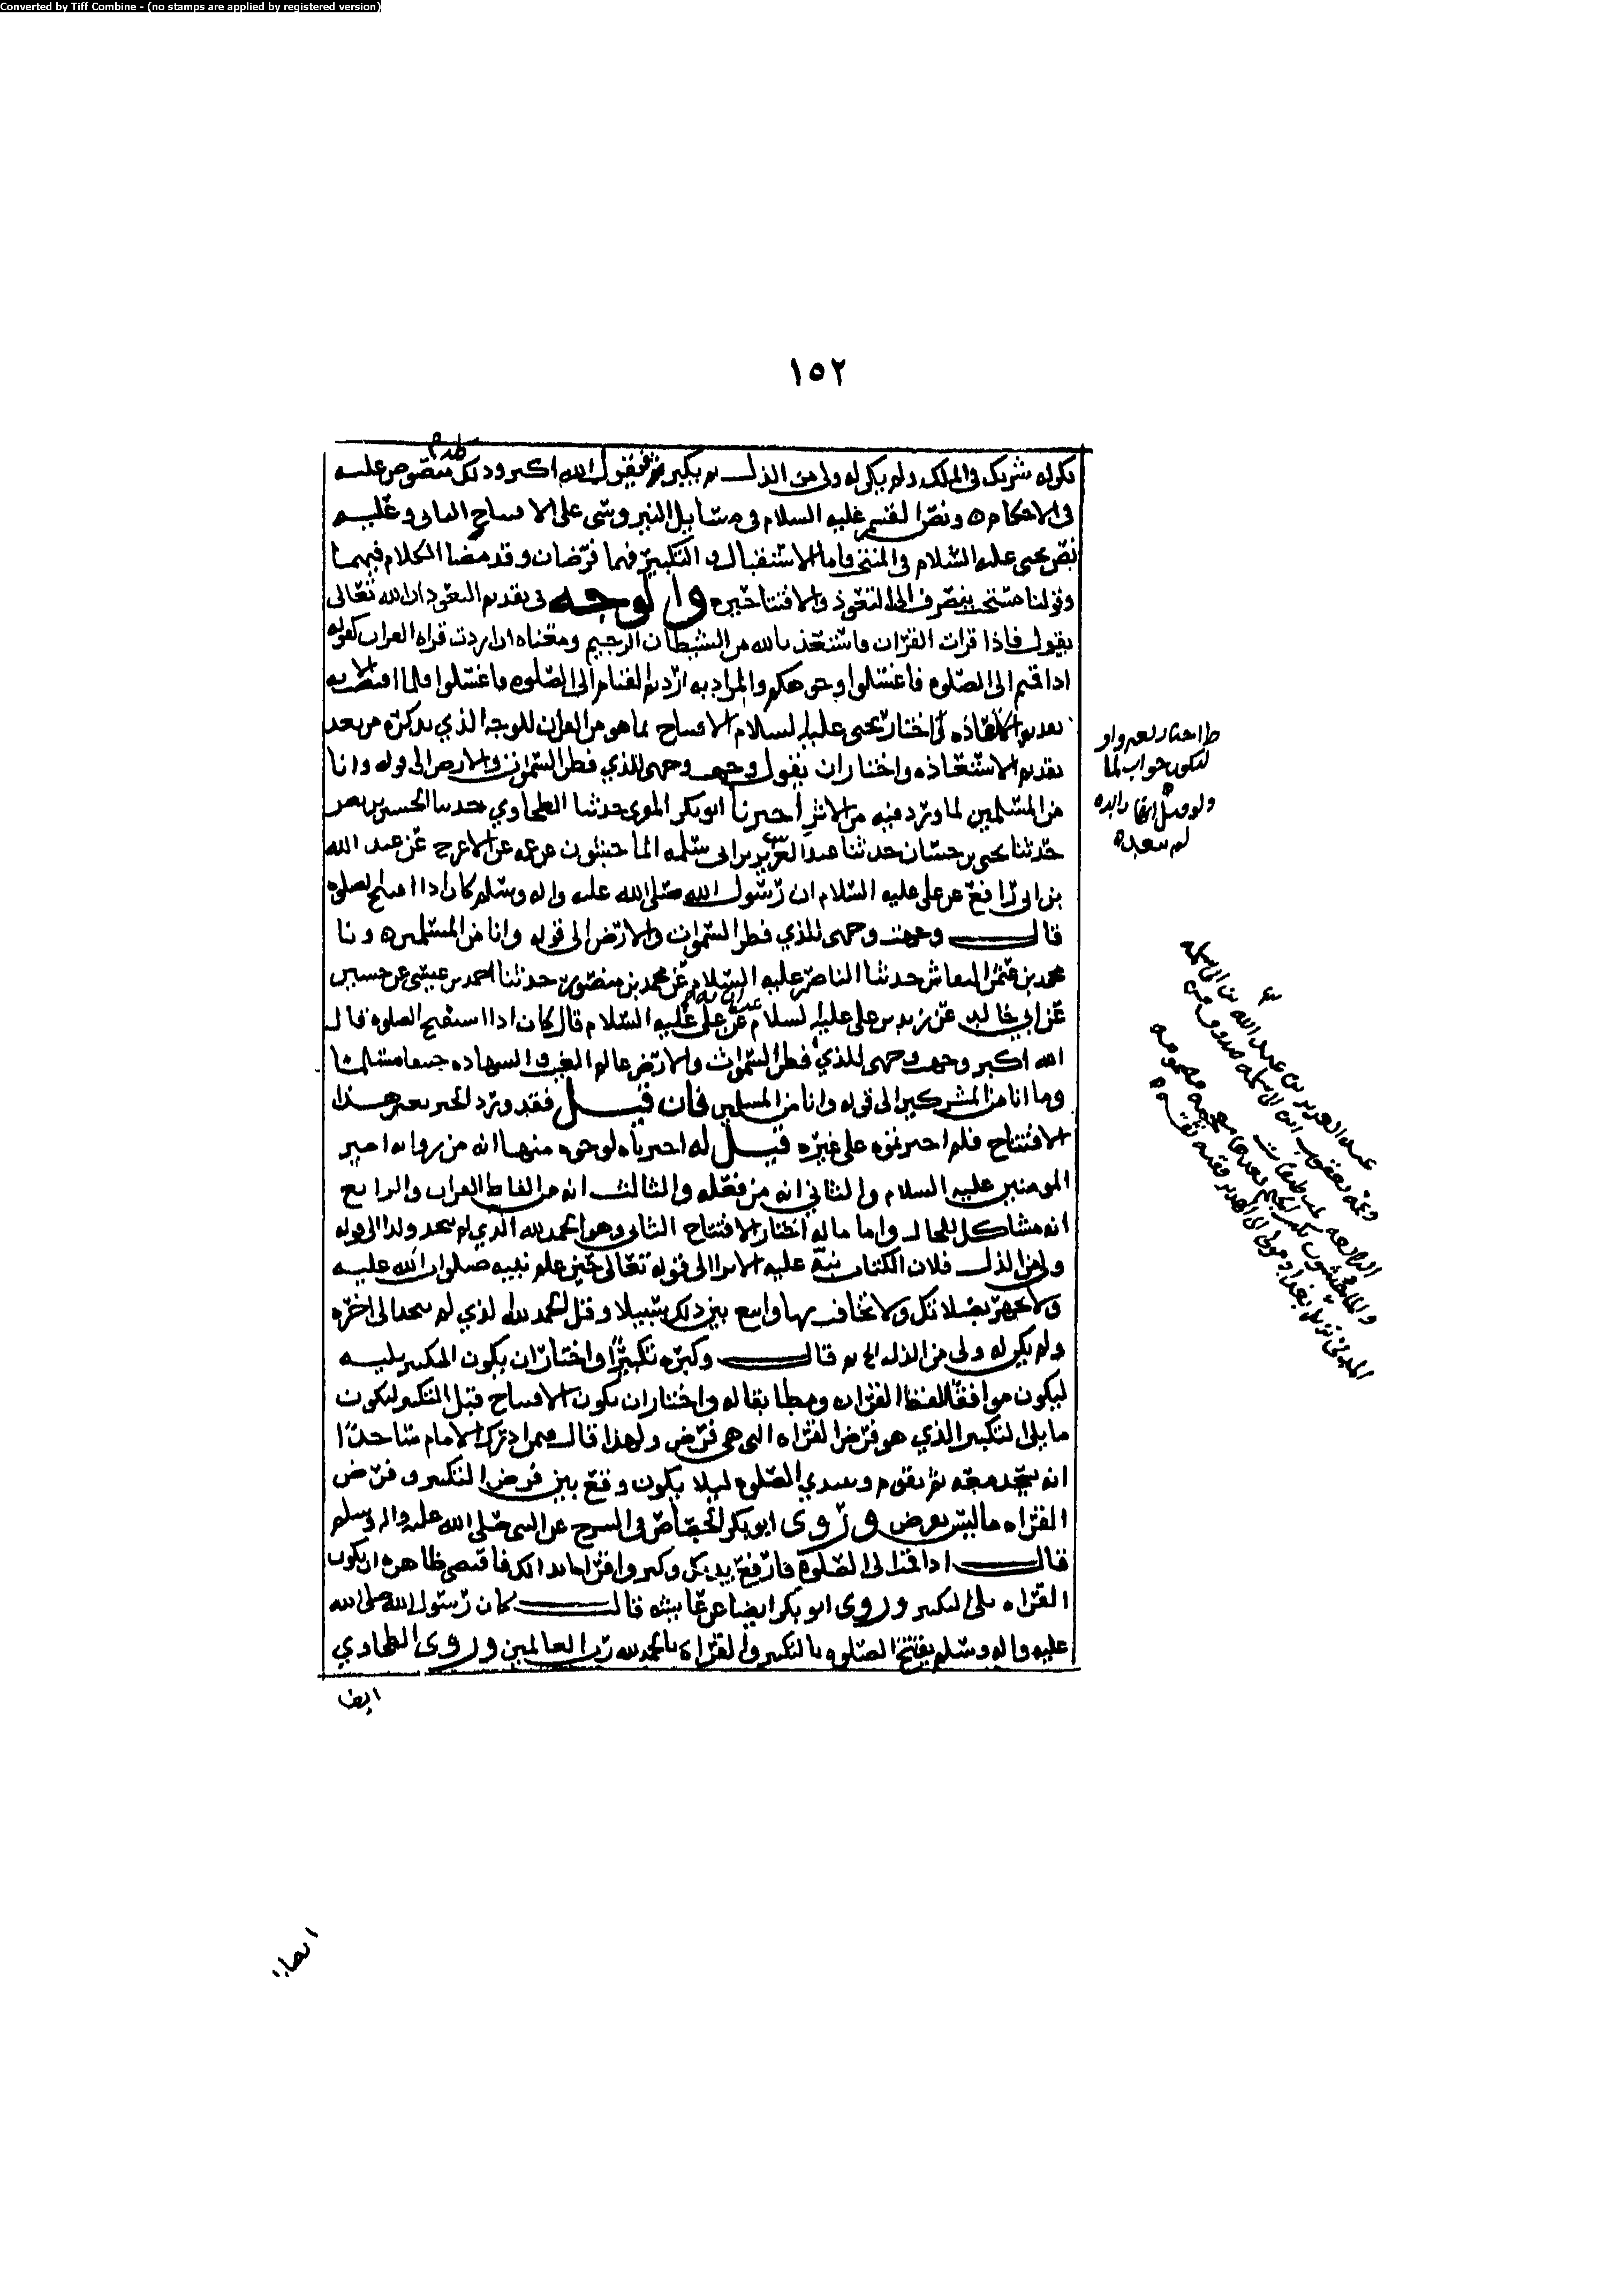 Converted by Tiff Combine - (no stamps are applied by registered version)
١٥٢
يكن له شريك في الملك ولم يكن له ولي من الذل ثم يكبر فيقول الله اكبر وذلك منصوص عليه
في الاحكام ونص القسم عليه السلام في مسايل النيروسي على الافتتاح الثاني وعليه
نص يحيى عليه السلام في المنتخب واما الاستقبال والتكبير فهما فرضان وقد مضا الكلام فيهما
وقولنا مستحب ينصرف الى التعوذ والافتتاحين والوجه في تقديم التعوذ ان الله تعالى
يقول فاذا قرات القران فاستعذ بالله من الشيطان الرجيم ومعناه اذا اردت قراه القران كقوله
اذا قمتم الى الصلوه فاغسلوا وجوهكم والمراد به اردتم القيام الى الصلوه فاغسلوا فلما اقتضا الايه
تقديم الاستعاذه اختار يحيى عليه السلام الافتتاح بما هو من القران للوجه الذي نذكره من بعد
تقديم الاستعاذه واختار ان يقول وجهت وجهي للذي فطر السموات والارض الى قوله وانا
من المسلمين لما ورد فيه من الاثر اخبرنا ابو بكر المقري حدثنا الطحاوي حدثنا الحسين بن نصر
حدثنا يحيى بن حسان حدثنا عبد العزيز بن ابي سلمه الماجشون عن عمه عن الاعرج عن عبد الله
بن ابي رافع عن علي عليه السلام ان رسول الله صلى الله عليه واله وسلم كان اذا افتتح الصلوه
قال وجهت وجهي للذي فطر السموات والارض الى قوله وانا من المسلمين ونا
محمد بن عثمن النقاش حدثنا الناصر عليه السلام عن محمد بن منصور حدثنا احمد بن عيسى عن حسين
عن ابي خالد عن زيد بن علي عليه السلام عن ابيه عن علي عليه السلام قال كان اذا استفتح الصلوه قال
الله اكبر وجهت وجهي للذي فطر السموات والارض عالم الغيب والشهاده حنيفا مسلما
وما انا من المشركين الى قوله وانا من المسلمين فان قيل فقد ورد الخبر بغير هذا
الافتتاح فلم اخترتموه على غيره قيل له اخترناه لوجوه منها انه من روايه امير
المومنين عليه السلام والثاني انه من فعله والثالث انه من الفاظ القران والرابع
انه مشاكل للحال واما ما له اختار الافتتاح الثاني وهو الحمد لله الذي لم يتخذ ولدا الى قوله
ولي من الذل فلان الكتاب نبه عليه الا ترا الى قوله تعالى حين علم نبيه صلوات الله عليه
ولا تجهر بصلاتك ولا تخافت بها وابتغ بين ذلك سبيلا وقل الحمد لله الذي لم يتخذ الى اخره
ولم يكن له ولي من الذل ثم قال وكبره تكبيرا واختار ان يكون التكبير يليه
ليكون موافقا للفظ القران ومطابقا له واختار ان يكون الافتتاح قبل التكبير ليكون
ما يلي التكبير الذي هو فرض القراه التي هي فرض ولهذا قال فيمن ادرك الامام ساجدا
انه يسجد معه ثم يقوم ويبتدي الصلوه ليلا يكون وقع بين فرض التكبير وفرض
القراه ما ليس بفرض وروى ابو بكر الجصاص في الشرح عن النبي صلى الله عليه واله وسلم
قال اذا قمت الى الصلوه فارفع يديك وكبر واقرا ما بدا لك فاقتضى ظاهره ان يكون
القراه تلي التكبير وروى ابو بكر ايضا عن عايشه قالت كان رسول الله صلى الله
عليه واله وسلم يفتتح الصلوه بالتكبير والقراه بالحمد لله رب العالمين وروى الطحاوي
ايضا
ليكون جواب لما
عبد العزيز بن عبد الله بن ابي سلمه